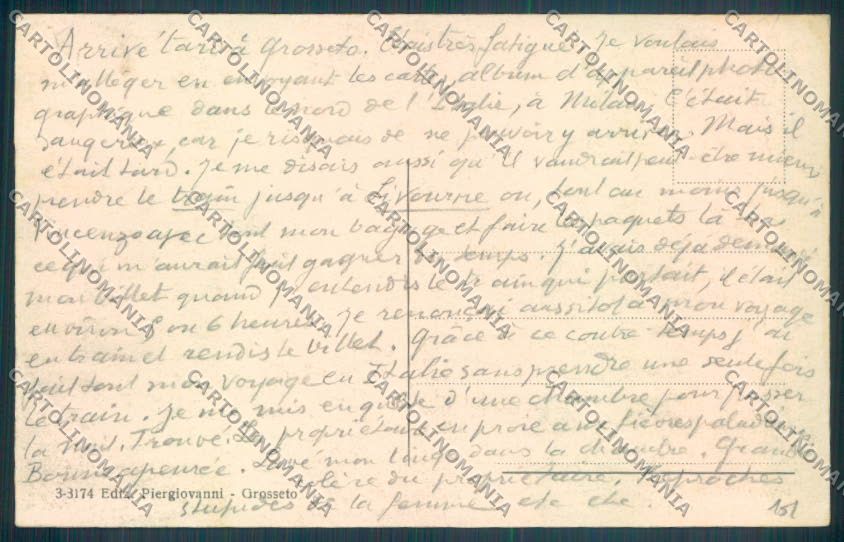 Arrivé tard à Grosseto. Etais très fatigué. Je voulais
m'alléger en envoyant les cartes, album d'appareil photo
graphique dans le nord de l'Italie, à Milan. C'était
dangereux, car je risquais de ne pouvoir y arriver. Mais il
était tard. Je me disais aussi qu'il vaudrait peut-être mieux
prendre le train jusqu'à Livourne ou, tout au moins jusqu'à
Vincenzo avec tout mon bagage et faire les paquets là
ce qui m'aurait fait gagner du temps. J'avais déjà demandé
mon billet quand j'entendis le train qui partait, il était
environ 5 ou 6 heures. Je renonçai aussitôt à mon voyage
en train et rendis le billet. Grâce à ce contre-temps j'ai
fait tout mon voyage en Italie sans prendre une seule fois
le train. Je me mis en quête d'une chambre pour passer
la nuit. Trouvé. Le propriétaire en proie aux fièvres paludéennes.
Bonne apeurée. Lavé mon linge dans la chambre. Grande
colère du propriétaire. Reproches
3-3174 Ediz. Piergiovanni - Grosseto
stupides de la femme etc etc.
151
CARTOLINOMANIA